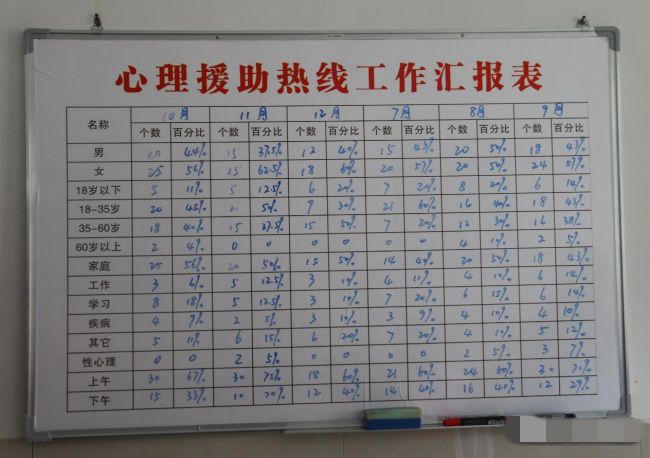 心理援助热线工作汇报表
名称 10月 11月 12月 7月 8月 9月
个数 百分比 个数 百分比 个数 百分比 个数 百分比 个数 百分比 个数 百分比
男 20 44% 15 37.5% 12 40% 15 43% 20 50% 18 43%
女 25 56% 25 62.5% 18 60% 20 57% 20 50% 24 57%
18岁以下 5 11% 5 12.5% 6 20% 7 20% 8 20% 6 14%
18-35岁 20 45% 50% 9 30% 21 60% 16 40% 18 43%
35-60岁 18 40% 15 37.5% 15 50% 7 20% 12 30% 16 38%
60岁以上 2 4% 0 0 0 0 0 0 4 10% 2 5%
家庭 25 56% 20 50% 15 50% 14 40% 20 50% 18 43%
工作 3 5 12.5% 3 10% 4 11% 4 10% 6 14%
学习 8 18% 5 12.5% 3 10% 7 20% 6 15% 6 14%
疾病 4 9% 2 5% 3 10% 3 9% 4 10% 4 10%
其它 5 11% 6 15% 6 20% 7 20% 4 10% 5 12%
性心理 0 0 2 5% 0 0 0 0 2 5% 3 7%
上午 30 67% 30 75% 18 60% 21 60% 24 60% 30
下午 15 33% 10 12 40% 14 40% 16 40% 12 29%